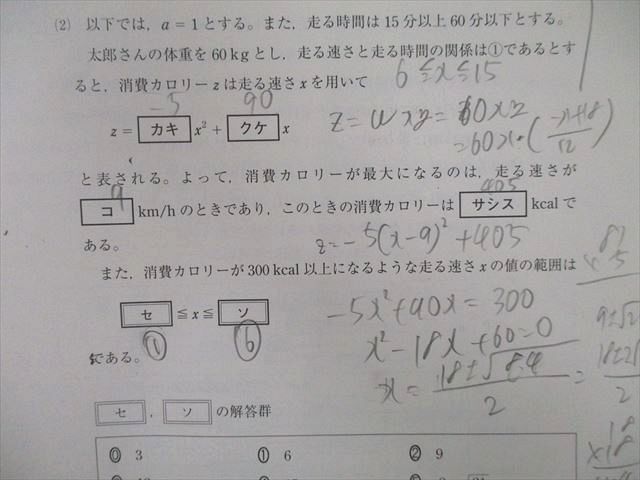 (2) 以下では，a＝1とする。また，走る時間は15分以上60分以下とする。
太郎さんの体重を60kgとし，走る速さと走る時間の関係は①であるとす
ると，消費カロリーzは走る速さxを用いて
6≦x≦15
-5 90
z＝ カキ x²＋ クケ x
z=wxy=60xy
=60x・(-x+18/12)
と表される。よって，消費カロリーが最大になるのは，走る速さが
9 405
コ km/hのときであり，このときの消費カロリーは サシス kcalで
ある。
z=-5(x-9)²+405
また，消費カロリーが300kcal以上になるような走る速さxの値の範囲は
セ ≦x≦ ソ
① ⑥
-5x²+90x=300
x²-18x+60=0
x=18±√84/2
である。
セ ， ソ の解答群
⓪ 3 ① 6 ② 9